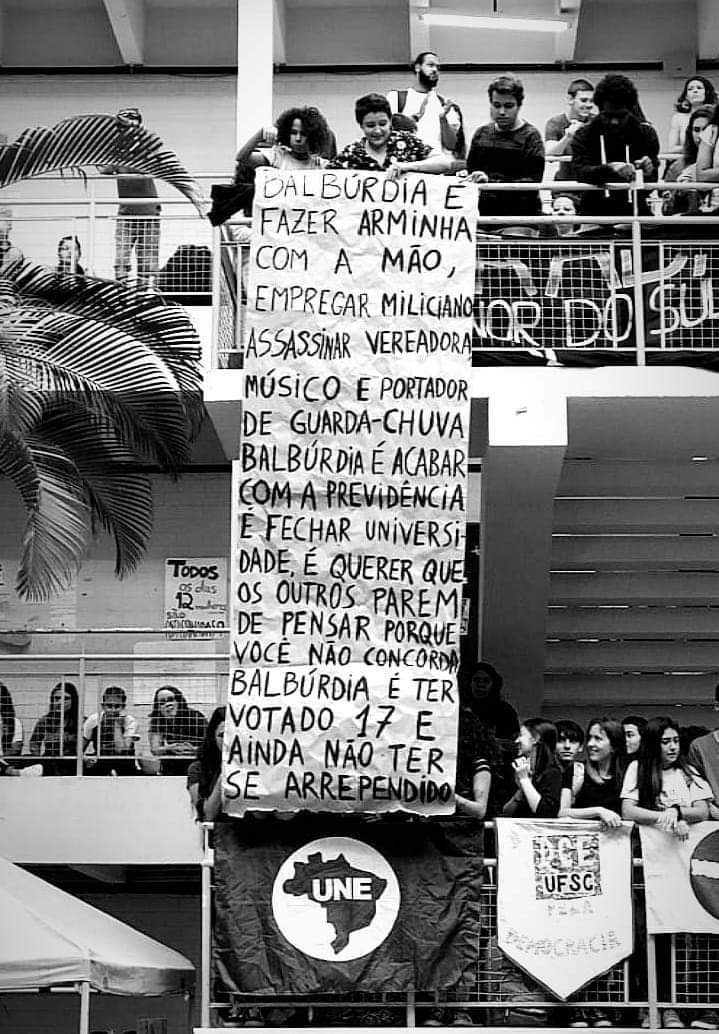 BALBÚRDIA É
FAZER ARMINHA
COM A MÃO,
EMPREGAR MILICIANO
ASSASSINAR VEREADORA
MÚSICO E PORTADOR
DE GUARDA-CHUVA
BALBÚRDIA É ACABAR
COM A PREVIDÊNCIA
É FECHAR UNIVERSI-
DADE, É QUERER QUE
OS OUTROS PAREM
DE PENSAR PORQUE
VOCÊ NÃO CONCORDA
BALBÚRDIA É TER
VOTADO 17 E
AINDA NÃO TER
SE ARREPENDIDO
DO SUL
TODOS
OS dias
12 mulheres
SÃO
UNE
UFSC
DEMOCRACIA